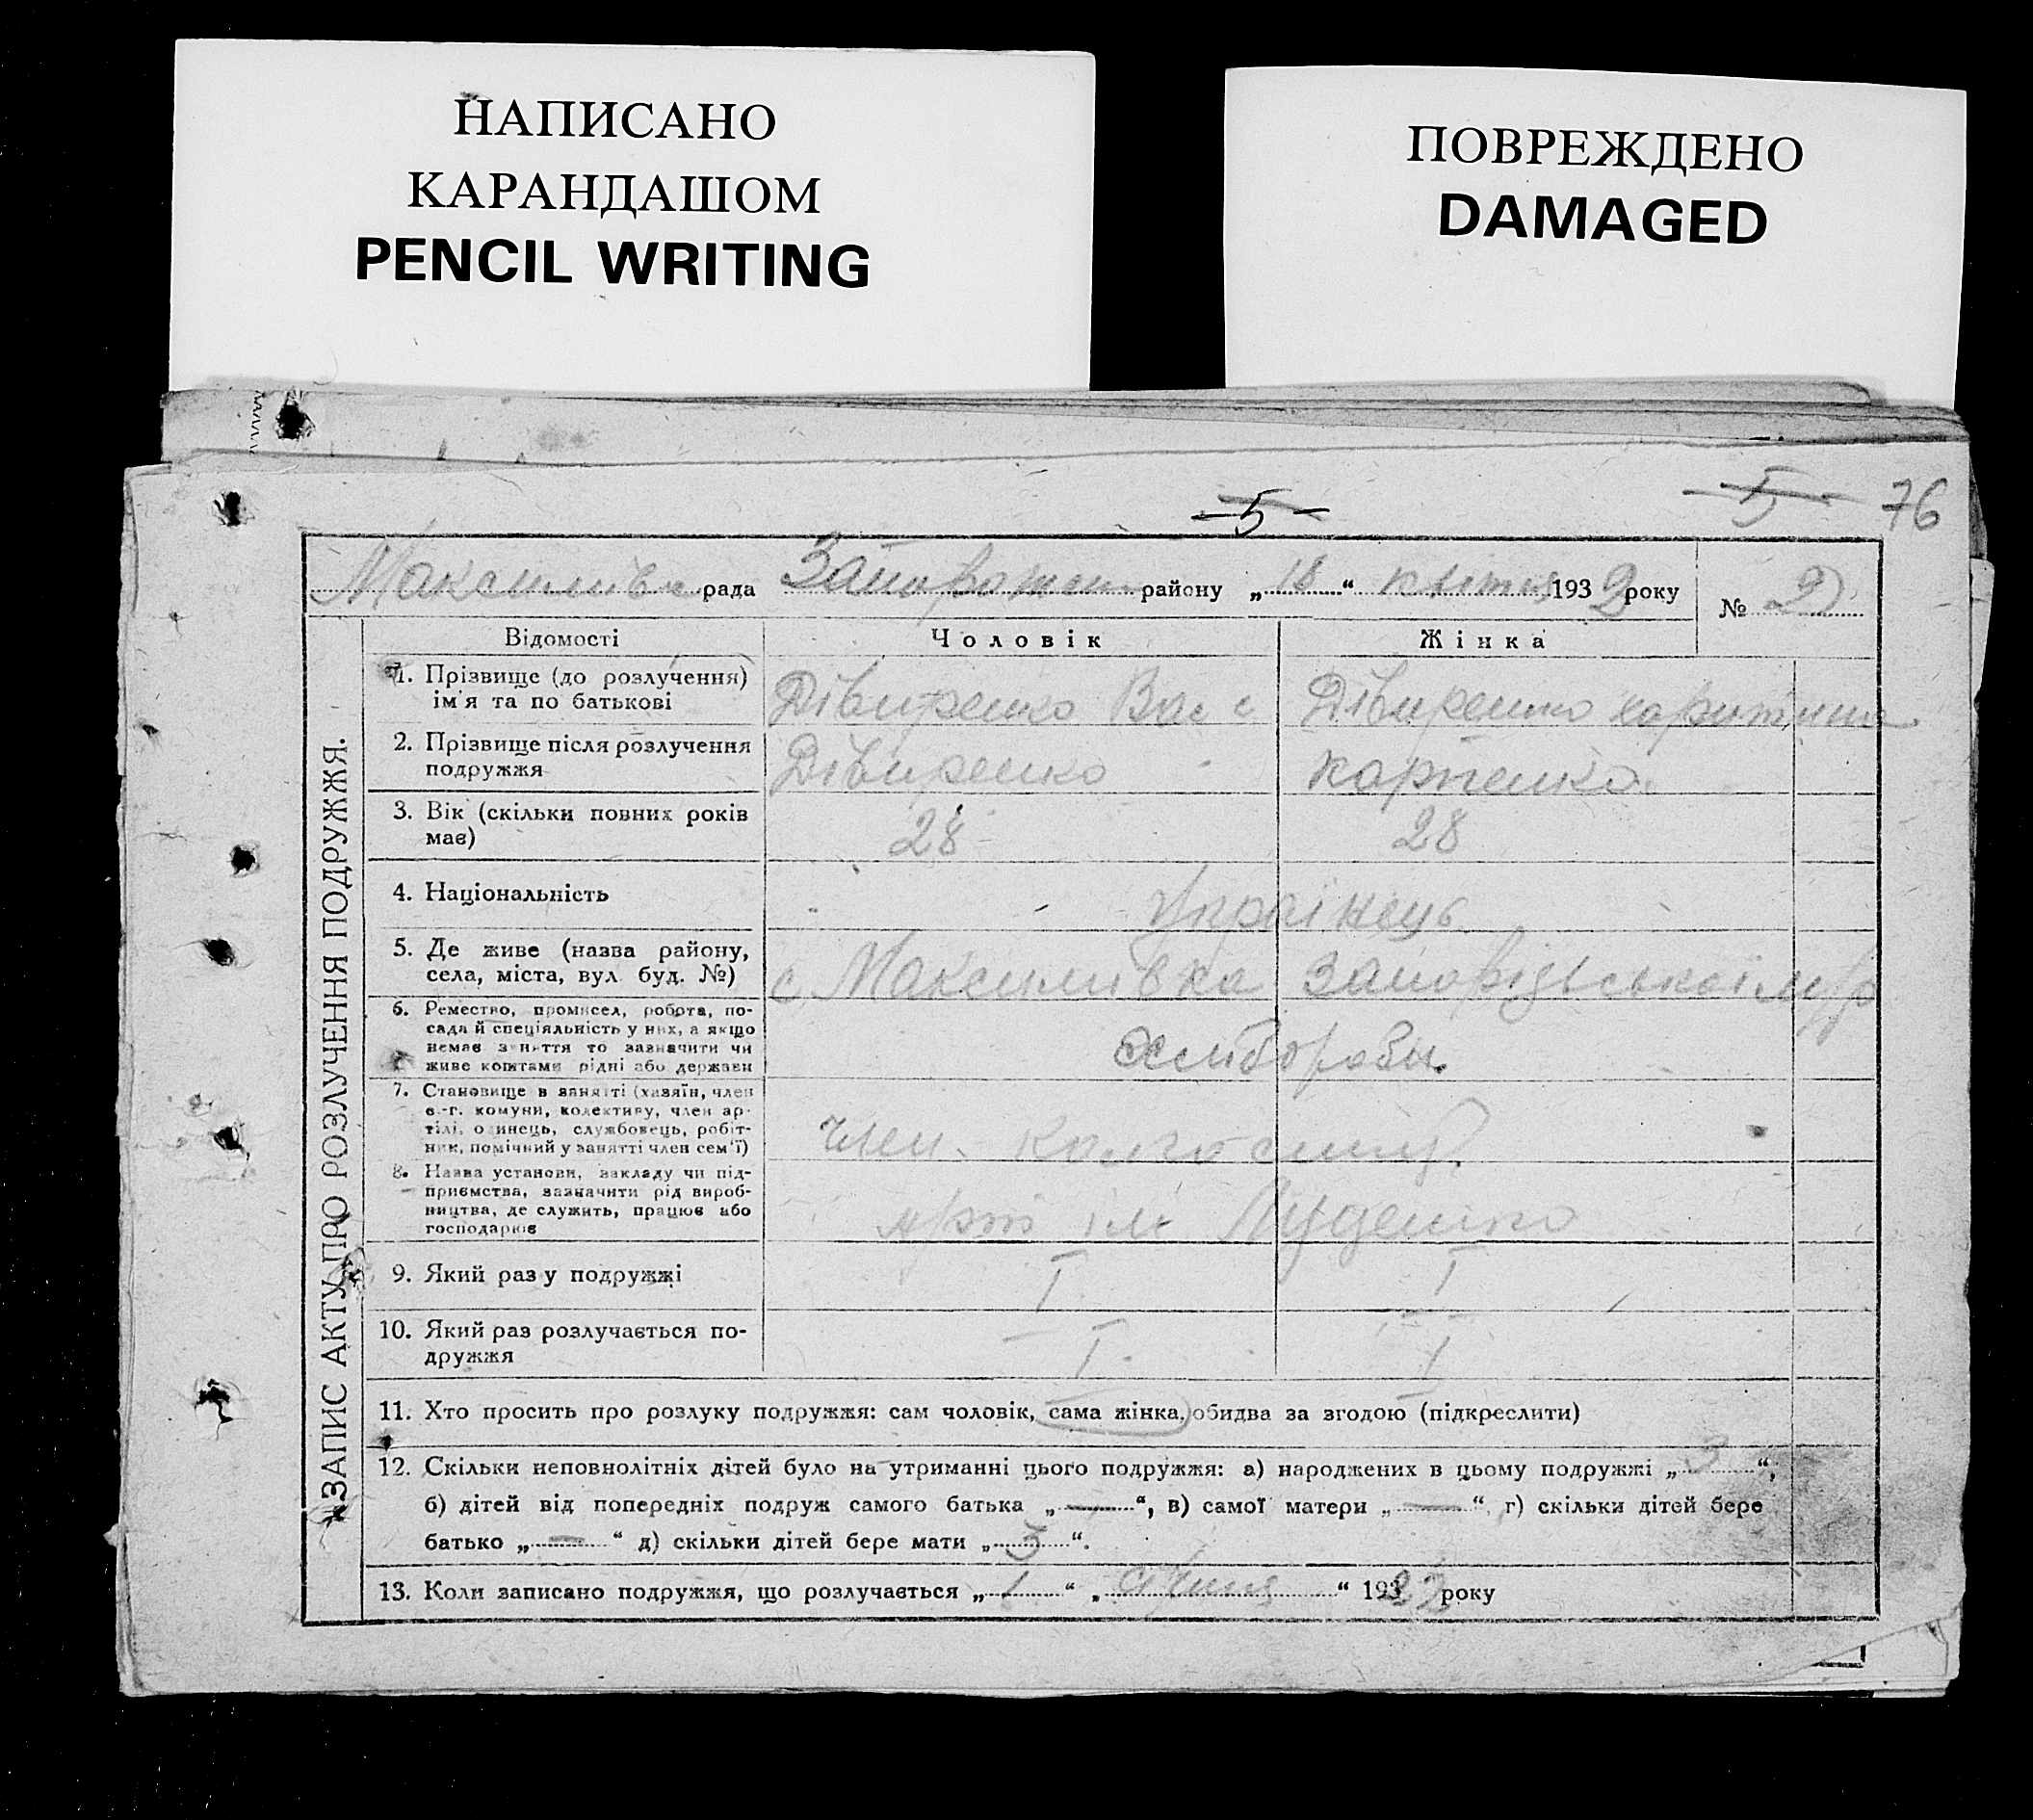 НАПИСАНО
КАРАНДАШОМ
PENCIL WRITING
ПОВРЕЖДЕНО
DAMAGED
5 5 76
рада району „18“ 1932 року № 2
ЗАПИС АКТУ ПРО РОЗЛУЧЕННЯ ПОДРУЖЖЯ.
Відомості Чоловік Жінка
1. Прізвище (до розлучення)
ім'я та по батькові
Дівиренко Вас
Дівиренко
2. Прізвище після розлучення
подружжя
Дівиренко
Карпенко
3. Вік (скільки повних років
має)
28 28
4. Національність
Українець
5. Де живе (назва району,
села, міста, вул буд. №)
с Максимівка
6. Ремество, промисел, робота, по-
сада й спеціяльність у них, а якщо
немає заняття то зазначити чи
живе коштами рідні або держави
Хлібороби.
7. Становище в занятті (хазяїн, член
с.-г. комуни, колективу, член ар-
тілі, одинець, службовець, робіт-
ник, помічний у занятті член сем'ї)
член колгоспу.
8. Назва установи, закладу чи під-
приємства, зазначити рід вироб-
ництва, де служить, працює або
господарює
арт ім
9. Який раз у подружжі
I I
10. Який раз розлучається по-
дружжя
I. I
11. Хто просить про розлуку подружжя: сам чоловік, сама жінка, обидва за згодою (підкреслити)
12. Скільки неповнолітніх дітей було на утриманні цього подружжя: а) народжених в цьому подружжі „3“,
б) дітей від попередніх подруж самого батька „—“, в) самої матери „—“, г) скільки дітей бере
батько „—“ д) скільки дітей бере мати „3“.
13. Коли записано подружжя, що розлучається „1“ „січня“ 193 року